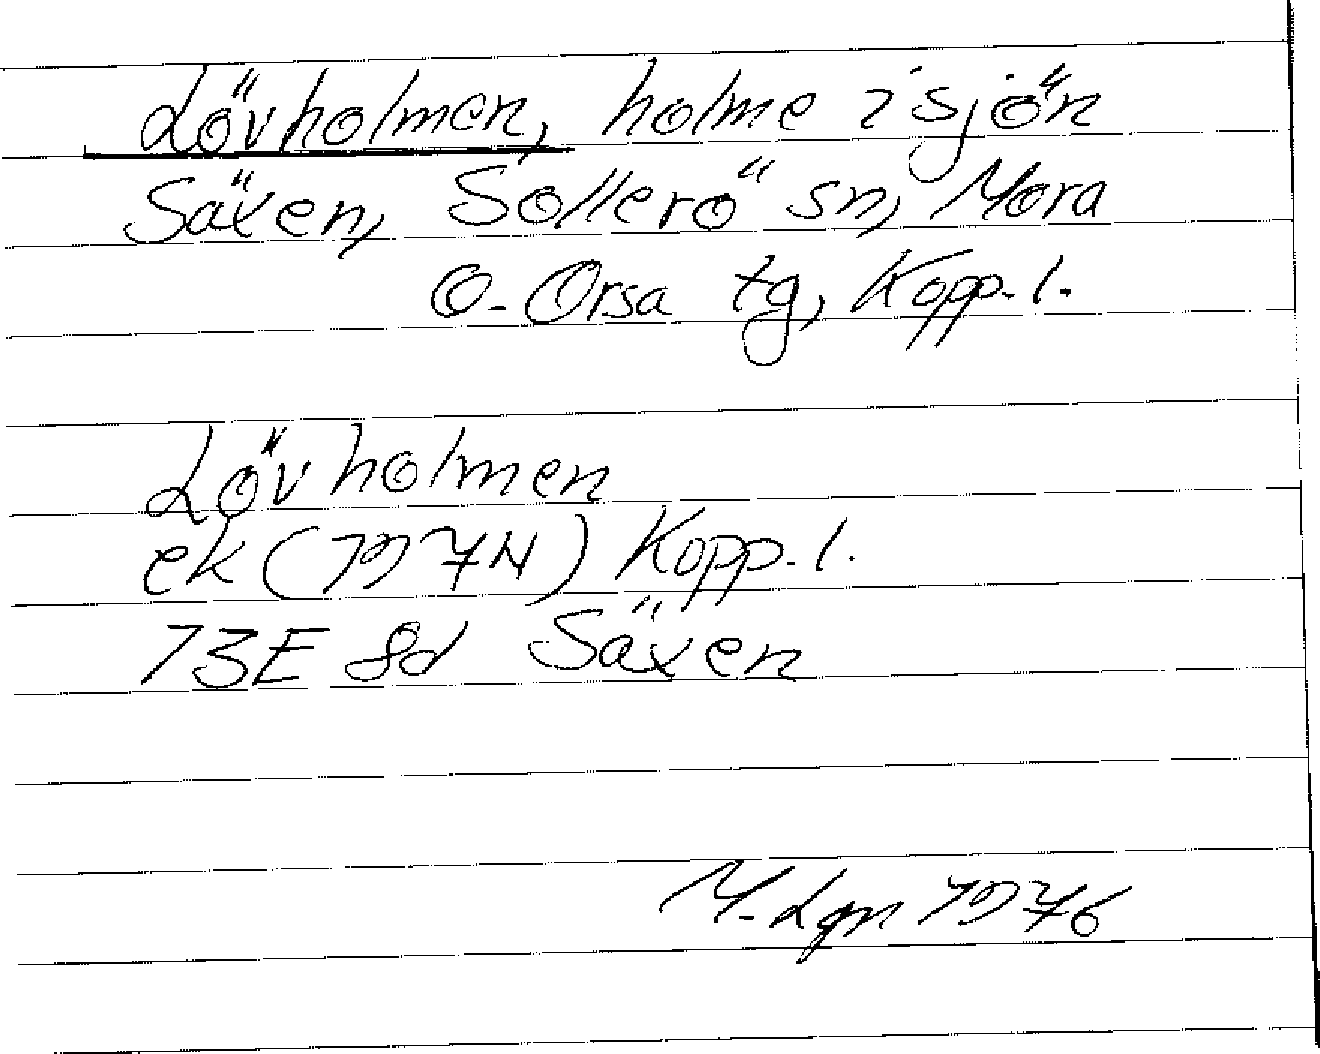 Lövholmen, holme i sjön
Säxen, Sollerö sn, Mora
o. Orsa tg, Kopp. l.
Lövholmen
ek (1974) Kopp. l.
13E 8d Säxen
M. Lgn 1976